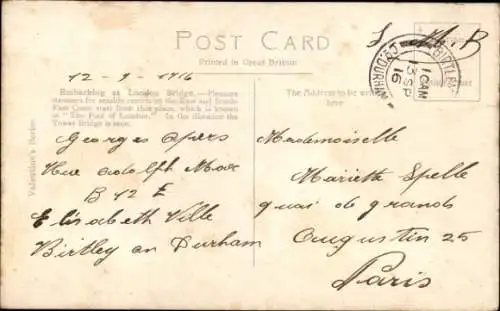 POST CARD
Printed in Great Britain
S. M. B
BIRTLEY
CO. DURHAM
10AM
13 SP
16
12-9-1916
Embarking at London Bridge.—Pleasure
steamers for seaside resorts on the East and South-
East Coast start from this place, which is known
as "The Pool of London." In the distance the
Tower Bridge is seen.
The Address to be written
here
Valentine's Series
Georges
Rue Adolph Max
B 42 E
Elisabeth Ville
Birtley on Durham
Mademoiselle
Mariette Spelle
quai de grands
Augustin 25
Paris